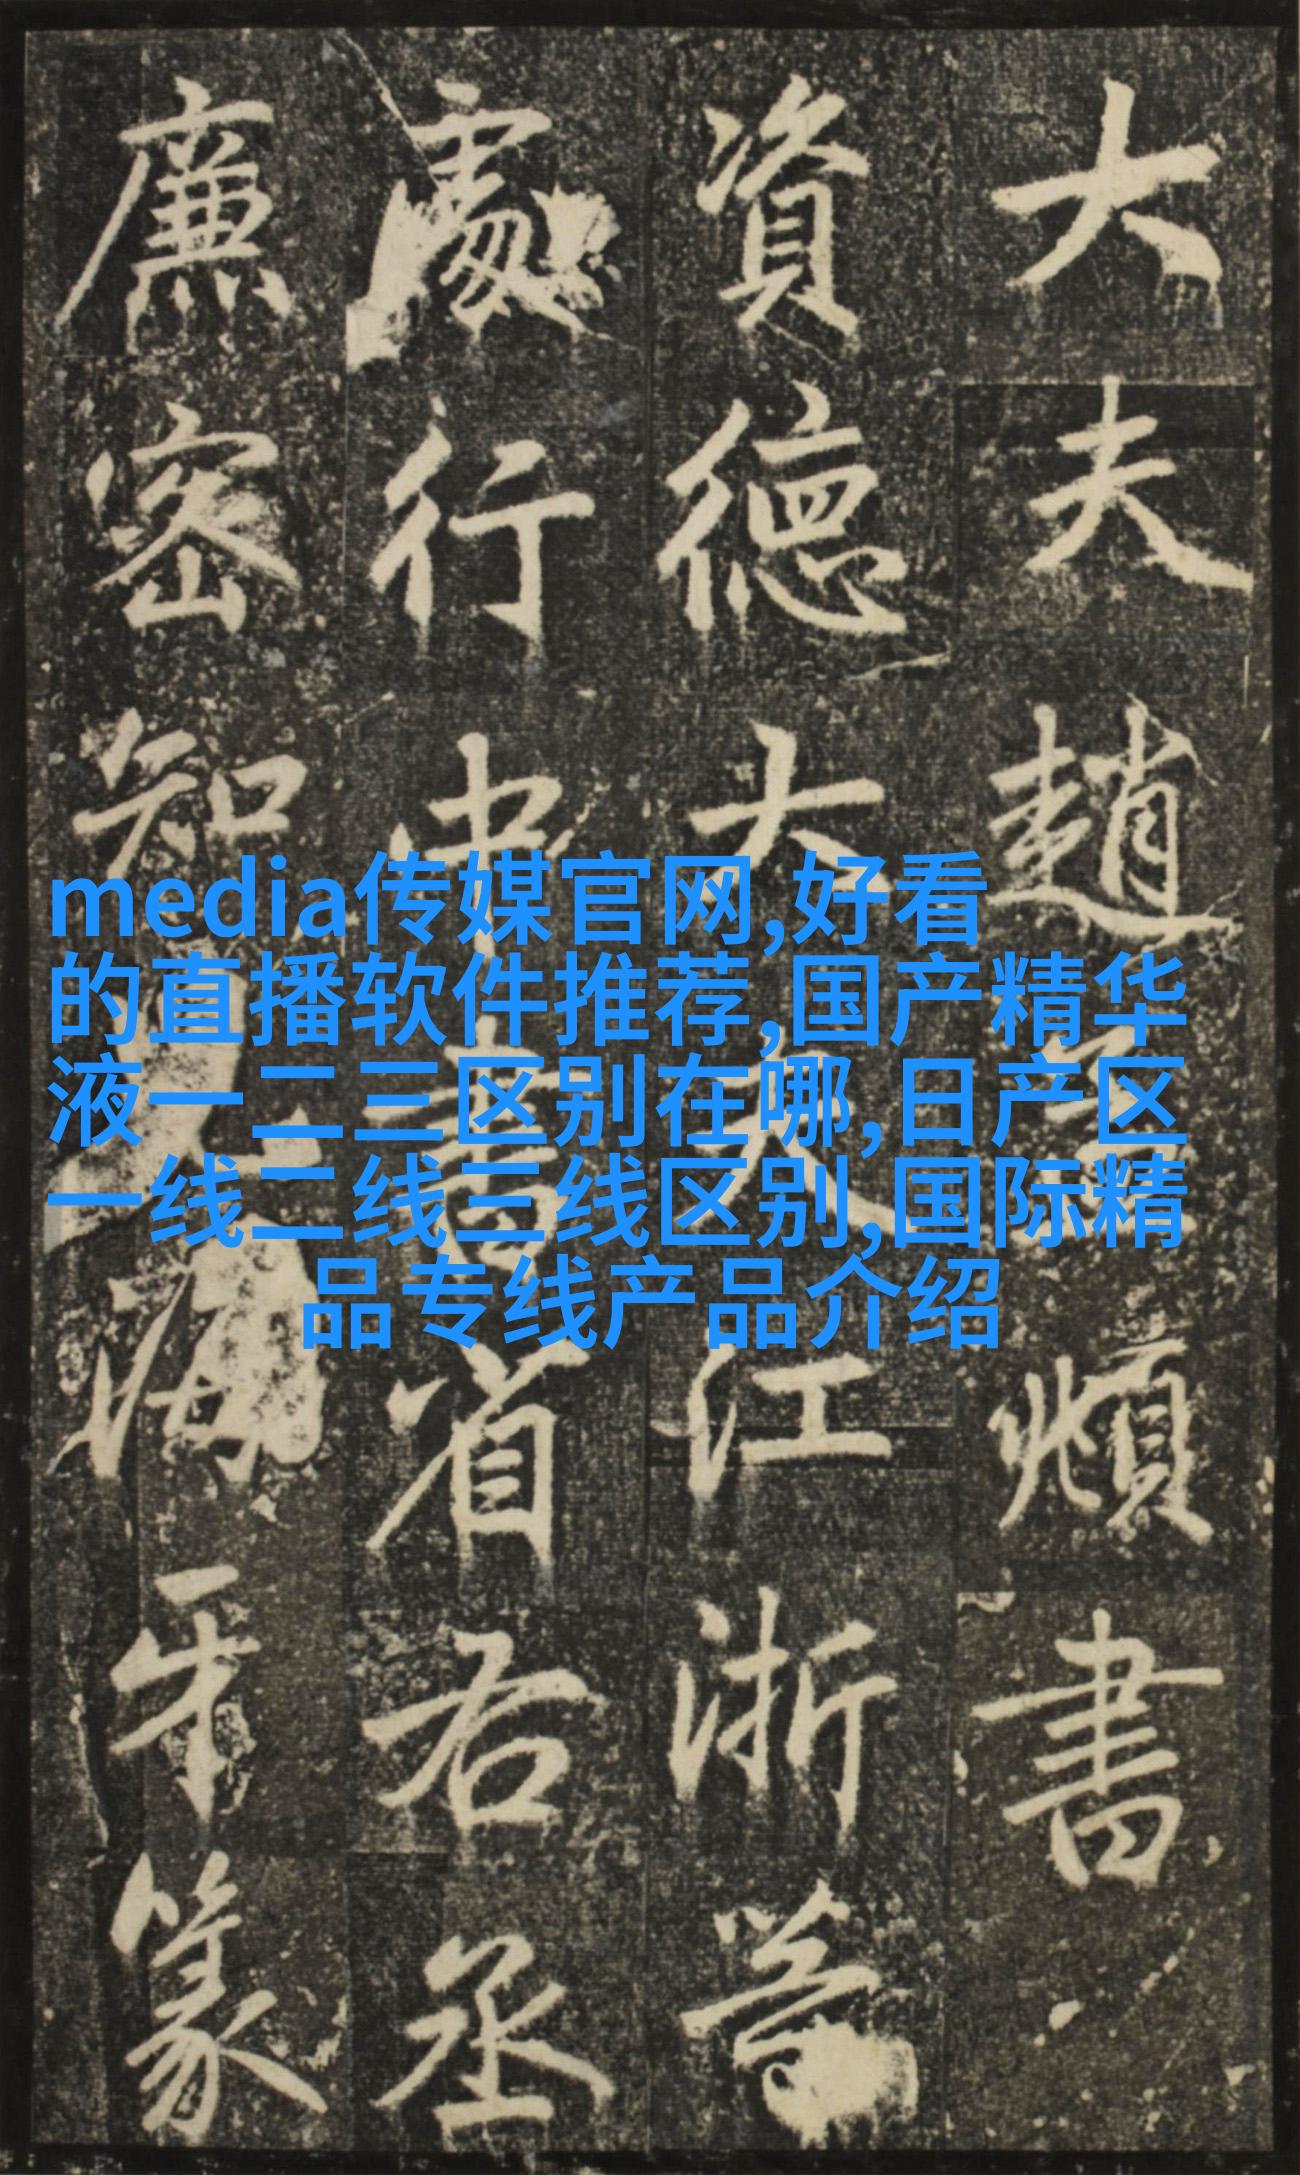 大夫趙孟頫書
資德大夫江浙等
處行中書省右丞
廉密知海牙篆
media传媒官网,好看
的直播软件推荐,国产精华
液一二三区别在哪,日产区
一线二线三线区别,国际精
品专线产品介绍